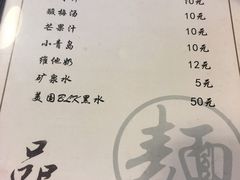 10元
酸梅汤 10元
芒果汁 10元
小青岛 10元
维他奶 12元
矿泉水 5元
美国BLK黑水 50元
品
麵